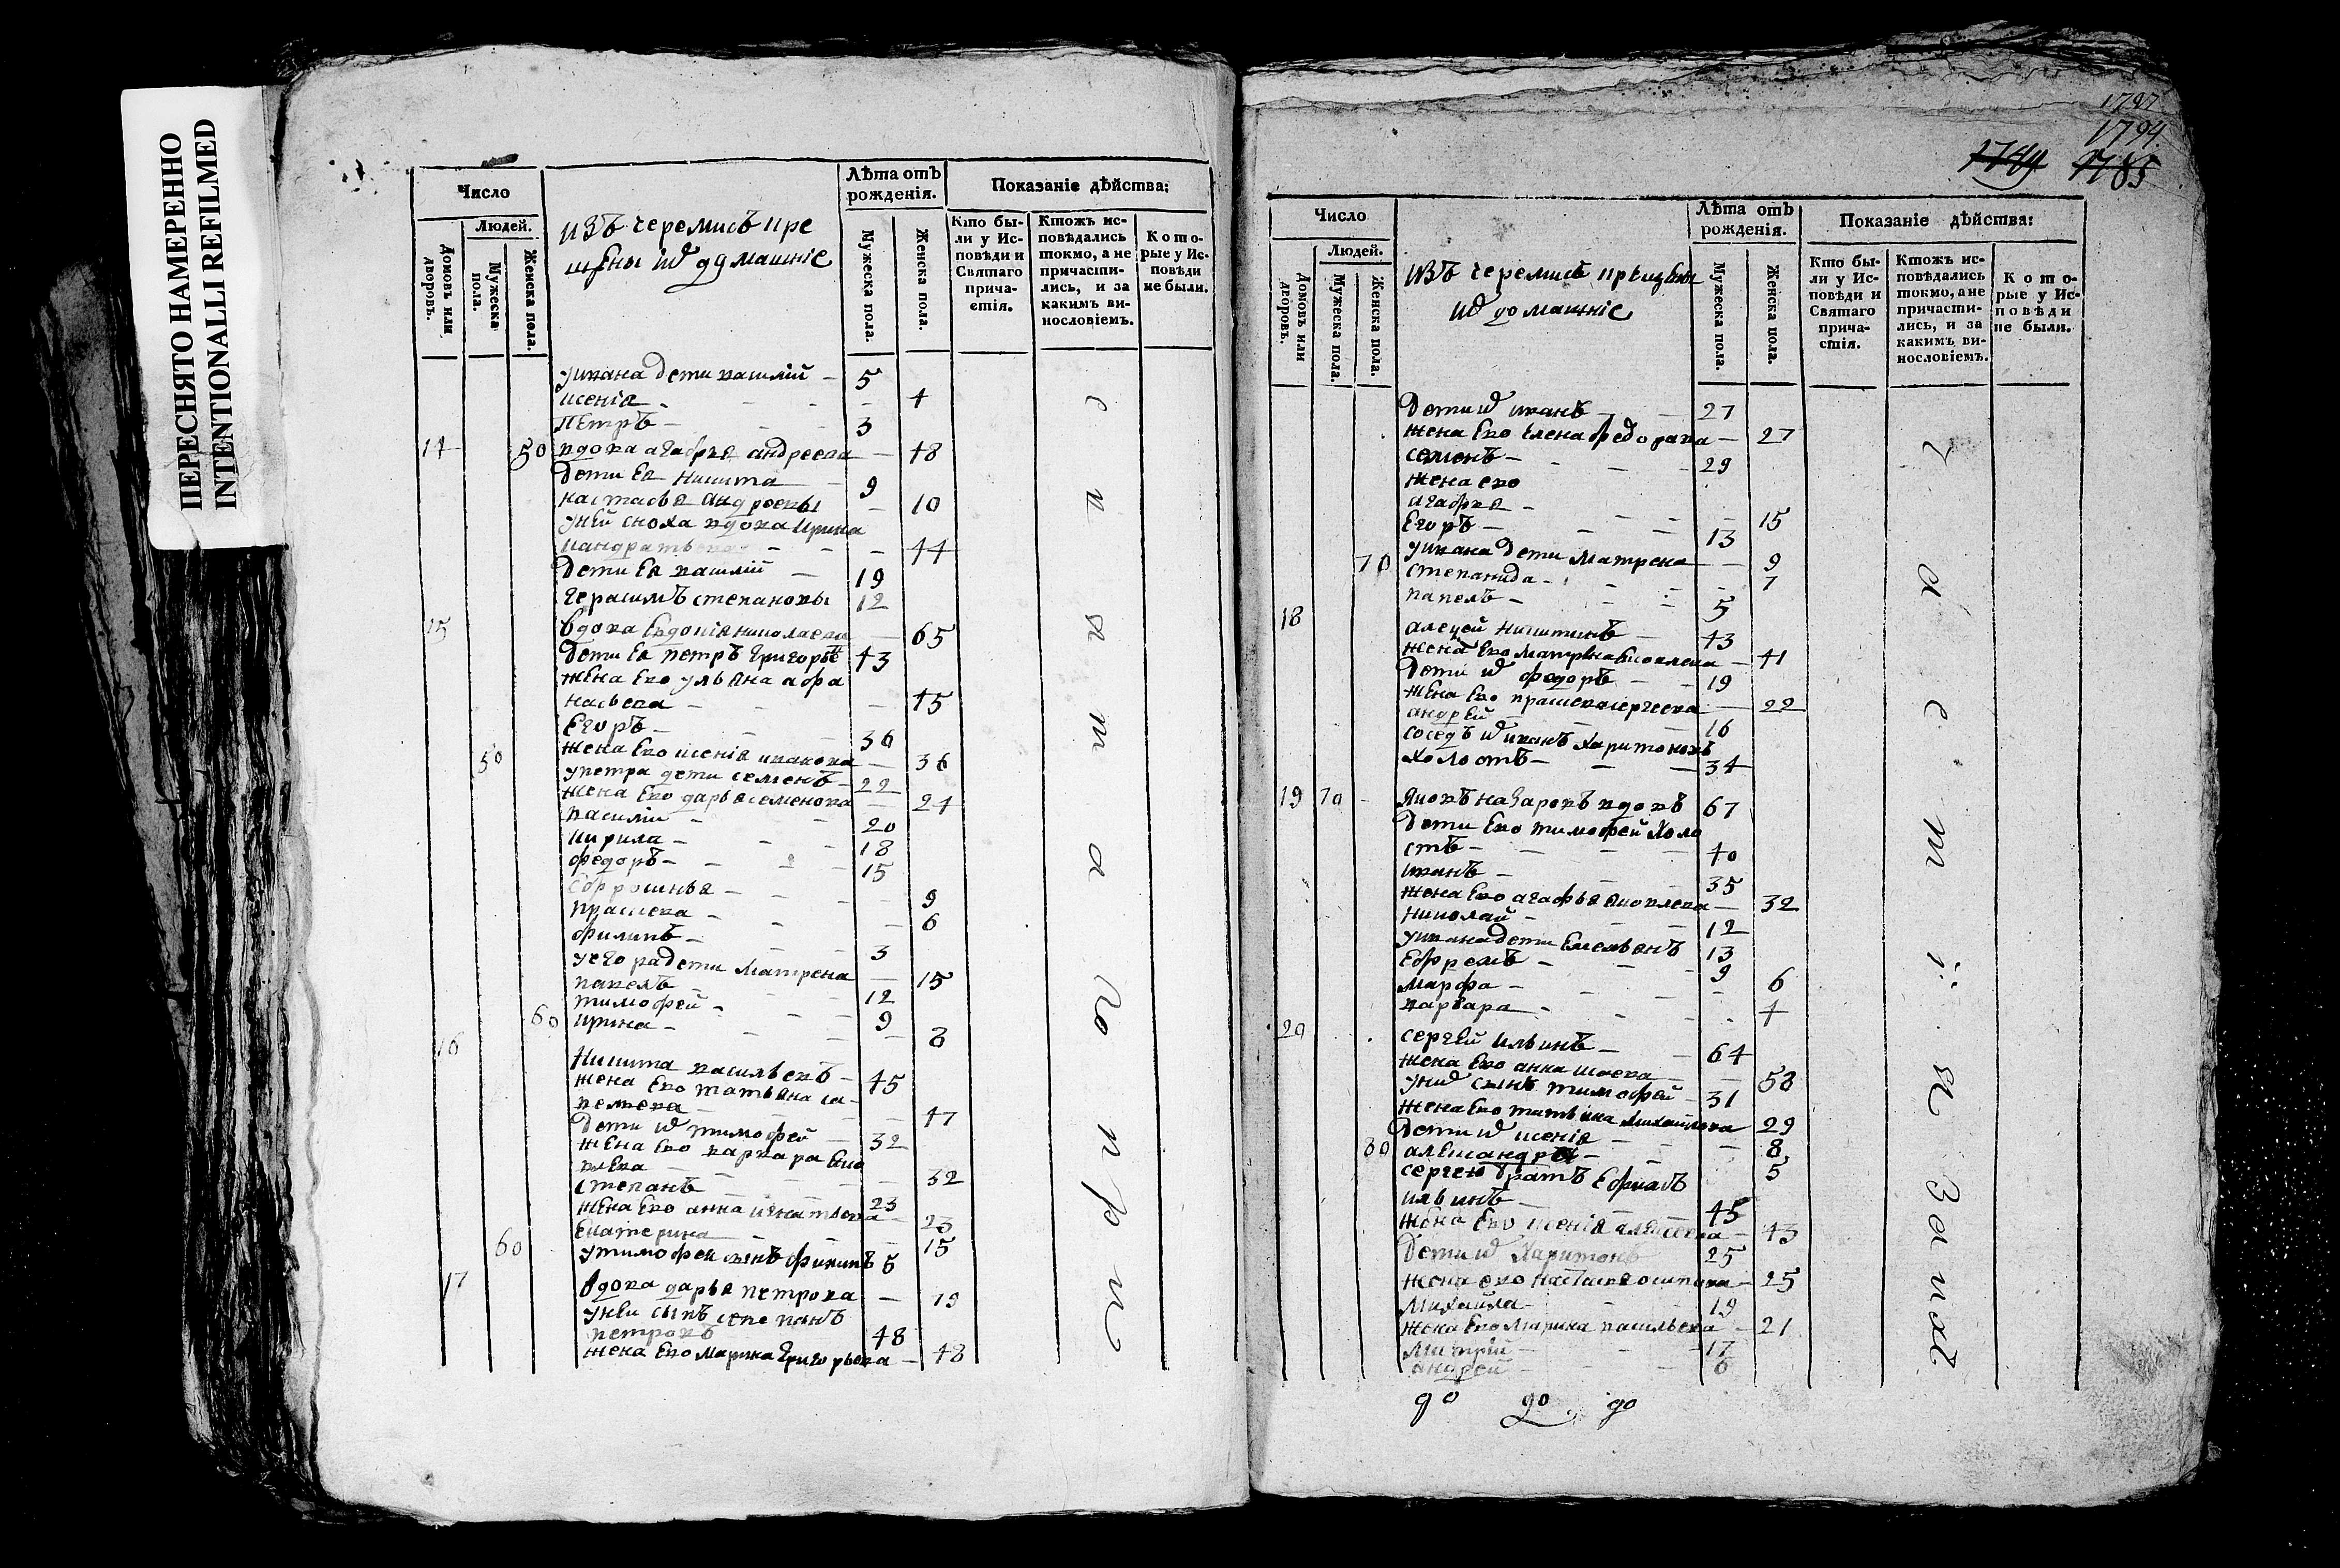 ПЕРЕСНЯТО НАМЕРЕННО
INTENTIONALLI REFILMED
Число
Людей.
Домовъ или дворовъ.
Мужеска пола.
Женска пола.
изъ черемисъ кре
щены
домашніе
Лѣта отъ рожденія.
Мужеска пола.
Женска пола.
Показаніе дѣйства:
Кто были у Исповѣди и Святаго причастія.
Ктожъ исповѣдались токмо, а не причастились, и за какимъ винословіемъ.
Которые у Исповѣди не были.
у ивана дети василій - 5
ксенія - 4
Петръ - 3
14 50 вдова агафья андреева - 48
дети ея никита 9
настасья андреевы - 10
у ней сноха вдова ирина
44
дети ея василій - 19
герасимъ степановы 12
15 вдова евдокія николаева - 65
дети ея петръ григорье 43
жена ево ульяна афа
насьева - 45
Егоръ - 36
жена ево ксенія иванова - 36
50 у петра дети семенъ - 22
жена ево дарья семенова - 24
василій - 20
кирила - 18
федоръ - 15
9
праскева - 6
филипъ - 3
у егора дети матрена - 15
павелъ - 12
тимофей - 9
60 ирина - 8
16 Никита васильевъ - 45
жена ево татьяна са
47
дети тимофей - 32
жена ево варвара яко
влева - 32
степанъ - 23
жена ево анна игнатьева - 23
екатерина - 15
60 у тимофея сынъ филипъ 6
17 вдова дарья петрова - 19
у неи сынъ степанъ
петровъ - 48
жена ево марина григорьева - 48
1727
1794
1785
Число
Людей.
Домовъ или дворовъ.
Мужеска пола.
Женска пола.
изъ черемисъ крещены
домашніе
Лѣта отъ рожденія.
Мужеска пола.
Женска пола.
Показаніе дѣйства:
Кто были у Исповѣди и Святаго причастія.
Ктожъ исповѣдались токмо, а не причастились, и за какимъ винословіемъ.
Которые у Исповѣди не были.
дети иванъ - 27
жена ево елена федорава - 27
семенъ - 29
жена ево
агафья - 15
Егоръ - 13
у ивана дети матрена - 9
70 степанида - 7
павелъ - 5
18 алексей никитинъ - 43
жена ево матрена яковлева - 41
дети федоръ - 19
жена ево праскева сергеева - 22
андрей - 16
соседъ иванъ харитоновъ
холостъ - 34
19 70 яковъ назаровъ вдовъ 67
дети ево тимофей холо
стъ - 40
иванъ - 35
жена ево агафья яковлева - 32
николай - 12
у ивана дети емельянъ 13
ефремъ - 9
марфа - 6
варвара - 4
20 сергей ильинъ - 64
жена ево анна исаева - 58
сынъ тимофей - 31
жена ево татьяна михайлова 29
дети ксенія - 8
80 александра - 5
сергею братъ ефимъ
ильинъ - 45
жена ево ксенія алексеева - 43
дети харитонъ 25
жена ево настасья осипова - 25
михайла - 19
жена ево марина васильева - 21
митрій - 17
андрей - 6
до до до